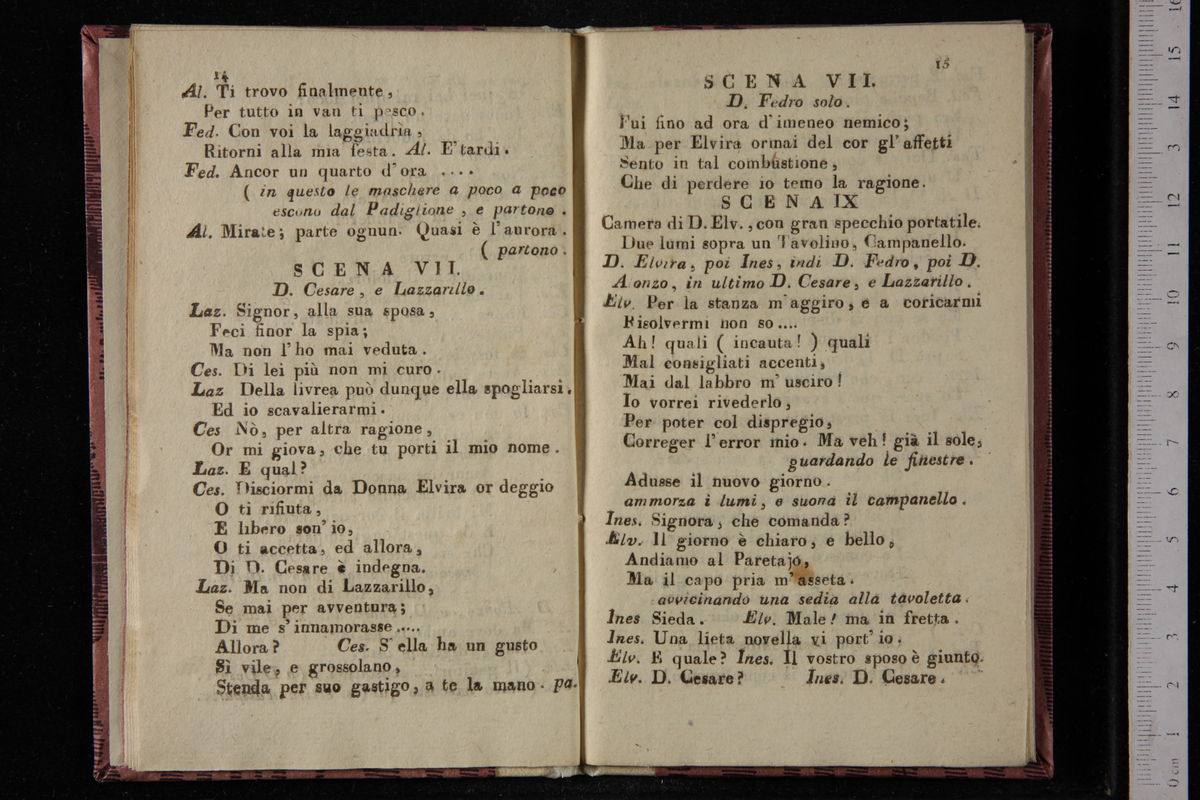 14
Al. Ti trovo finalmente,
Per tutto in van ti pesco.
Fed. Con voi la laggiadria,
Ritorni alla mia festa. Al. E' tardi.
Fed. Ancor un quarto d'ora ....
( in questo le maschere a poco a poco
escono dal Padiglione, e partono.
Al. Mirate; parte ognun. Quasi è l'aurora.
( partono.
SCENA VII.
D. Cesare, e Lazzarillo.
Laz. Signor, alla sua sposa,
Feci finor la spia;
Ma non l'ho mai veduta.
Ces. Di lei più non mi curo.
Laz Della livrea può dunque ella spogliarsi,
Ed io scavalierarmi.
Ces Nò, per altra ragione,
Or mi giova, che tu porti il mio nome.
Laz. E qual?
Ces. Disciormi da Donna Elvira or deggio
O ti rifiuta,
E libero son' io,
O ti accetta, ed allora,
Di D. Cesare è indegna.
Laz. Ma non di Lazzarillo,
Se mai per avventura;
Di me s'innamorasse.....
Allora? Ces. S'ella ha un gusto
Sì vile, e grossolano,
Stenda per suo gastigo, a te la mano. pa.
15
SCENA VII.
D. Fedro solo.
Fui fino ad ora d'imeneo nemico;
Ma per Elvira ormai del cor gl'affetti
Sento in tal combustione,
Che di perdere io temo la ragione.
SCENA IX
Camera di D. Elv., con gran specchio portatile.
Due lumi sopra un Tavolino, Campanello.
D. Elvira, poi Ines, indi D. Fedro, poi D.
A onzo, in ultimo D. Cesare, e Lazzarillo.
Elv. Per la stanza m'aggiro, e a coricarmi
Risolvermi non so....
Ah! quali ( incauta! ) quali
Mal consigliati accenti,
Mai dal labbro m' usciro!
Io vorrei rivederlo,
Per poter col dispregio,
Correger l'error mio. Ma veh! già il sole,
guardando le finestre.
Adusse il nuovo giorno.
ammorza i lumi, e suona il campanello.
Ines. Signora, che comanda?
Elv. Il giorno è chiaro, e bello,
Andiamo al Paretajo,
Ma il capo pria m' asseta.
avvicinando una sedia alla tavoletta.
Ines Sieda. Elv. Male! ma in fretta.
Ines. Una lieta novella vi port' io.
Elv. E quale? Ines. Il vostro sposo è giunto.
Elv. D. Cesare? Ines. D. Cesare.
0 cm 1 2 3 4 5 6 7 8 9 10 11 12 13 14 15 16